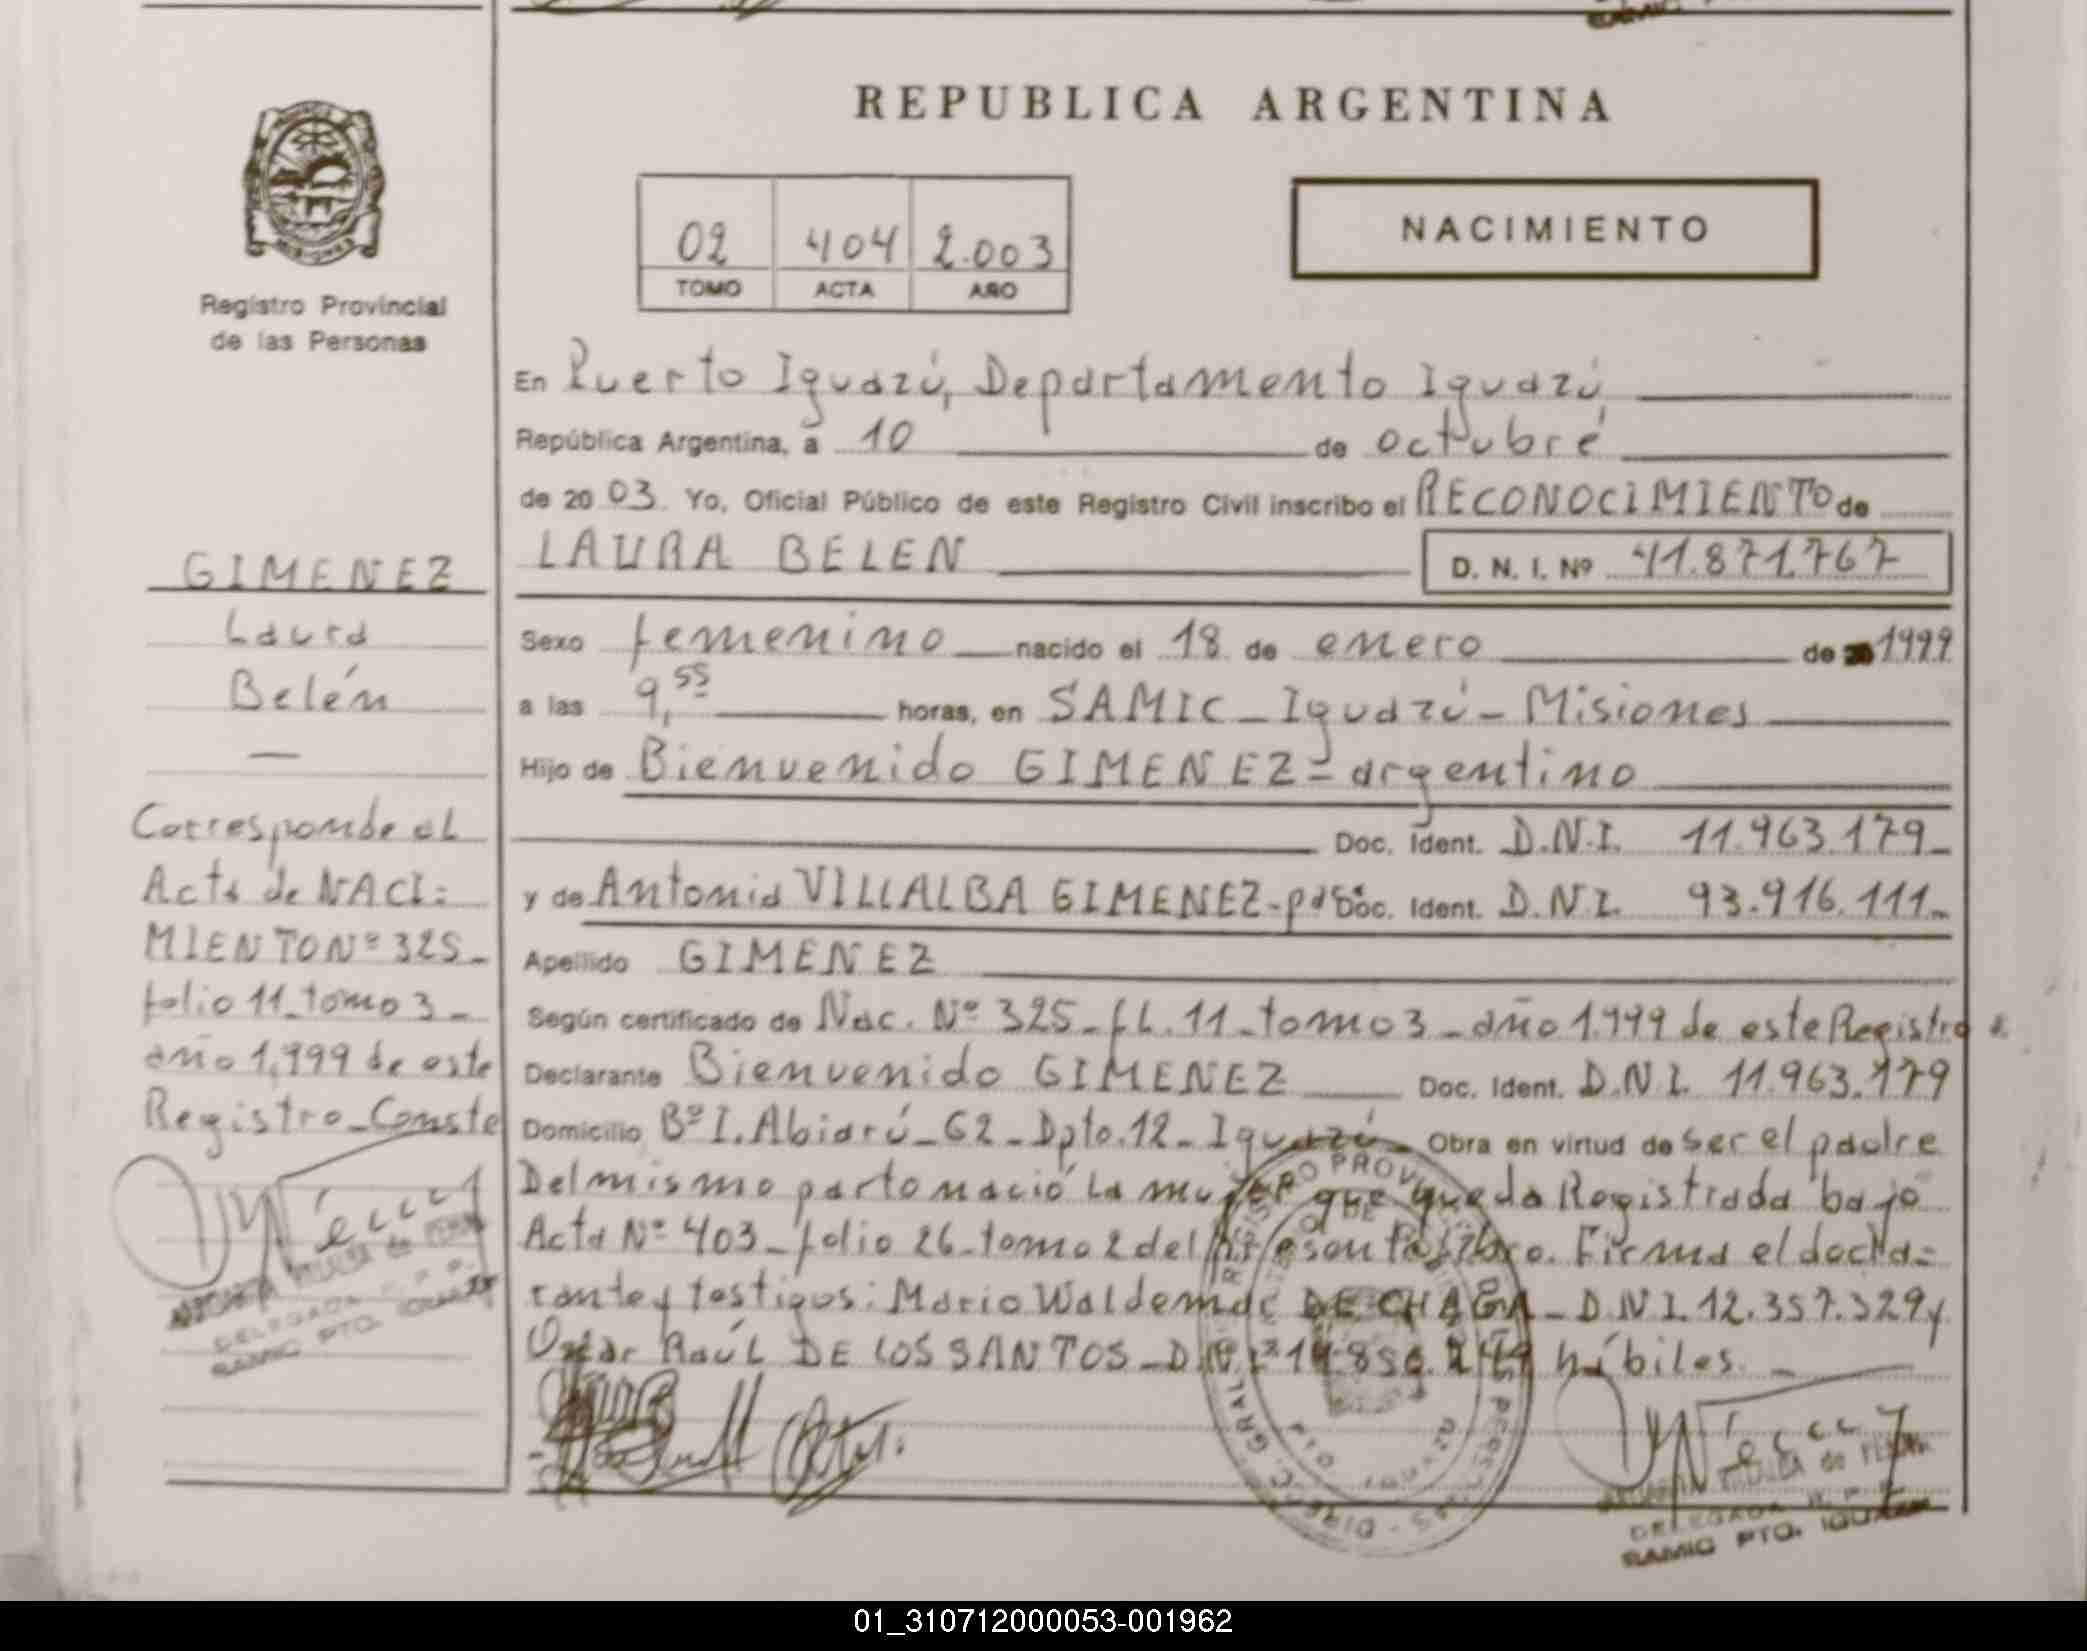 REPUBLICA ARGENTINA
02 404 2.003
TOMO ACTA AÑO
NACIMIENTO
MISIONES
Registro Provincial
de las Personas
En Puerto Iguazú, Departamento Iguazú
República Argentina, a 10 de octubre
de 2003. Yo, Oficial Público de este Registro Civil inscribo el RECONOCIMIENTO de
LAURA BELEN D. N. I. Nº 41.871.767
Sexo femenino nacido el 18 de enero de 1999
a las 9,55 horas, en SAMIC - Iguazú - Misiones
Hijo de Bienvenido GIMENEZ = argentino
Doc. Ident. D.N.I. 11.963.179-
y de Antonia VILLALBA GIMENEZ - Doc. Ident. D.N.I. 93.916.111-
Apellido GIMENEZ
Según certificado de Nac. Nº 325 - fl. 11 - tomo 3 - año 1.999 de este Registro
Declarante Bienvenido GIMENEZ Doc. Ident. D.N.I. 11.963.179
Domicilio Bº I. Abiarú - 62 - Dpto. 12 - Iguazú Obra en virtud de ser el padre
Del mismo parto nació la mujer que queda Registrada bajo
Acta Nº 403 - folio 26 - tomo 2 del presente libro. Firma el decla=
rante y testigos: Mario Waldemar DE CHAGA - D.N.I. 12.357.329 y
Oscar Raúl DE LOS SANTOS - hábiles. -
GIMENEZ
Laura
Belén
—
Corresponde al
Acta de NACI=
MIENTO Nº 325 -
folio 11 - tomo 3 -
año 1.999 de este
Registro - Conste
DELEGADA
SAMIC PTO. IGUAZU
REGISTRO PROVINCIAL DE LAS PERSONAS
DIREC. GRAL.
PTO. IGUAZU
DELEGADA R. P. P.
SAMIC PTO. IGUAZU
01_310712000053-001962